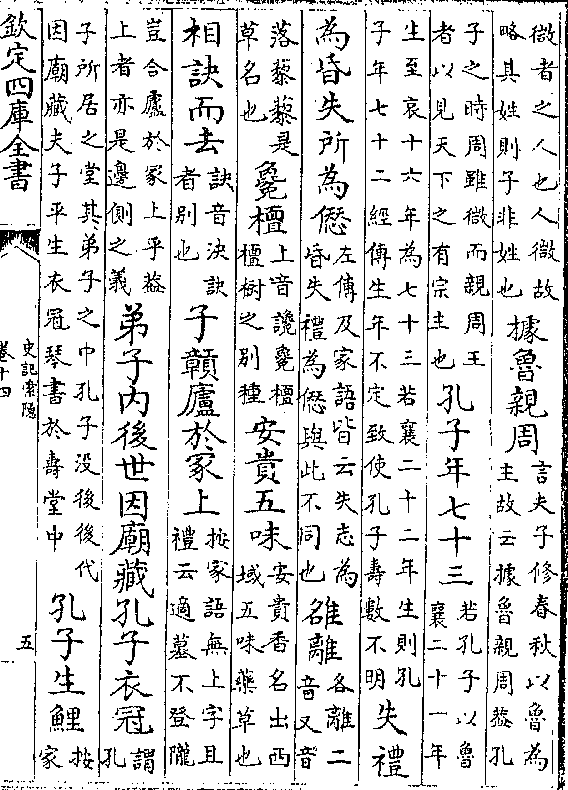 微者之人也人微故
略其姓則子非姓也
據魯親周
言夫子修春秋以魯為
主故云據魯親周葢孔
子之時周雖微而親周王
者以見天下之有宗主也
孔子年七十三
若孔子以魯
襄二十一年
生至哀十六年為七十三若襄二十二年生則孔
子年七十二經傳生年不定致使孔子壽數不明
失禮
為昏失所為愆
左傳及家語皆云失志為
昏失禮為愆與此不同也
雒離
各離二
音又音
落藜藜是
草名也
毚檀
上音讒毚檀
檀樹之別種
安貴五味
安貴香名出西
域五味藥草也
相訣而去
訣音決訣
者別也
子贛廬於冢上
按家語無上字且
禮云適墓不登隴
豈合廬於冢上乎葢
上者亦是邊側之義
弟子內後世因廟藏孔子衣冠
謂
孔
子所居之堂其弟子之中孔子没後後代
因廟藏夫子平生衣冠琴書於壽堂中
孔子生鯉
按
家
欽定四庫全書
史記索隱
卷十四
五